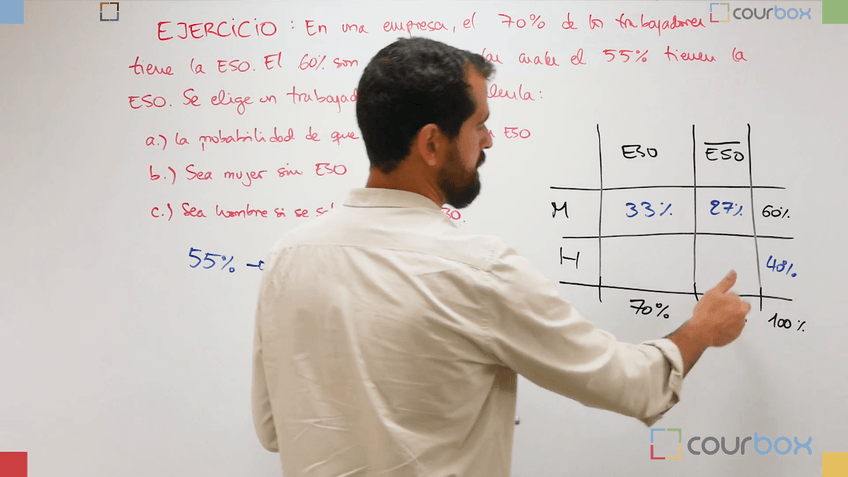 EJERCICIO : En una empresa, el 70% de los trabajadores
tiene la ESO. El 60% son las cuales el 55% tienen la
ESO. Se elige un
a.) la probabilidad de que ESO
b.) Sea mujer sin ESO
c.) Sea hombre si se
55%
ESO ESO
M 33% 27% 60%
H 40%
70% 100%
courbox
courbox